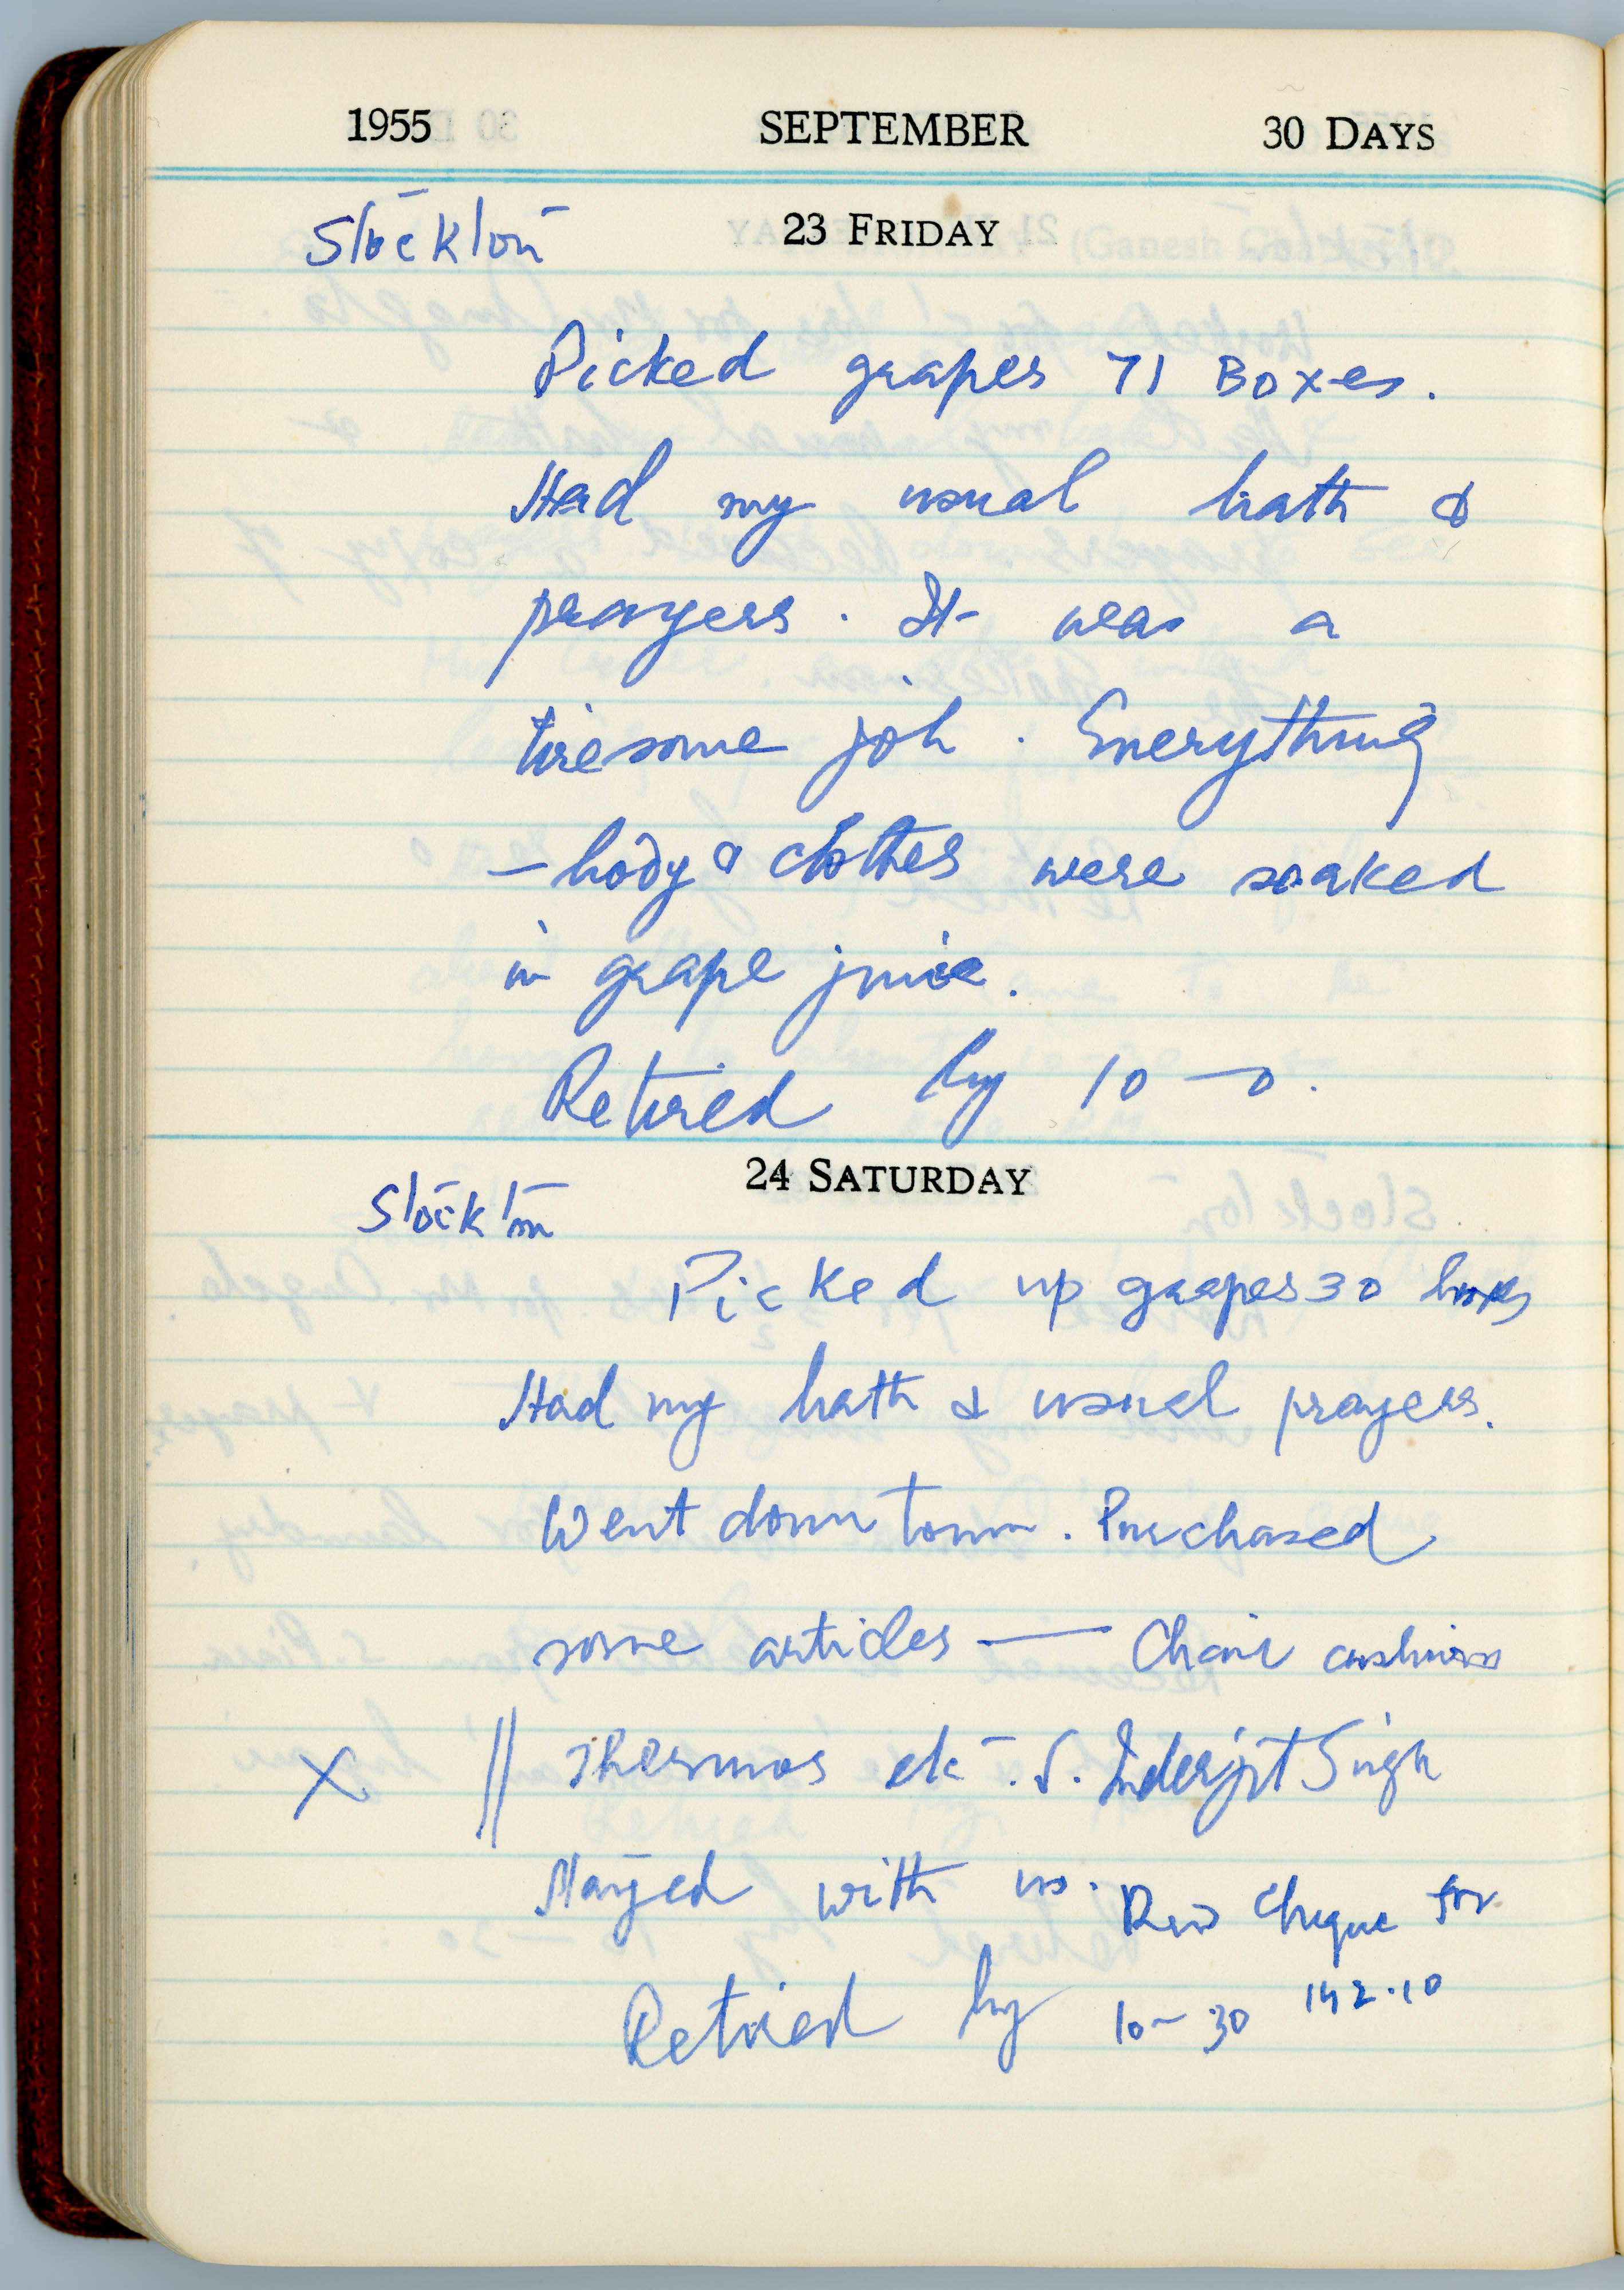 1955 SEPTEMBER 30 DAYS
Stockton 23 FRIDAY
Picked grapes 71 Boxes.
Had my usual bath &
prayers. It was a
tiresome job. Everything
- body & clothes were soaked
in grape juice.
Retired by 10-0.
24 SATURDAY
Stockton
Picked up grapes 30 boxes
Had my bath & usual prayers.
Went down town. Purchased
some articles — Chair cushions
X || Thermos etc. S. Inderjit Singh
stayed with us. Recd Cheque for
142.10
Retired by 10-30